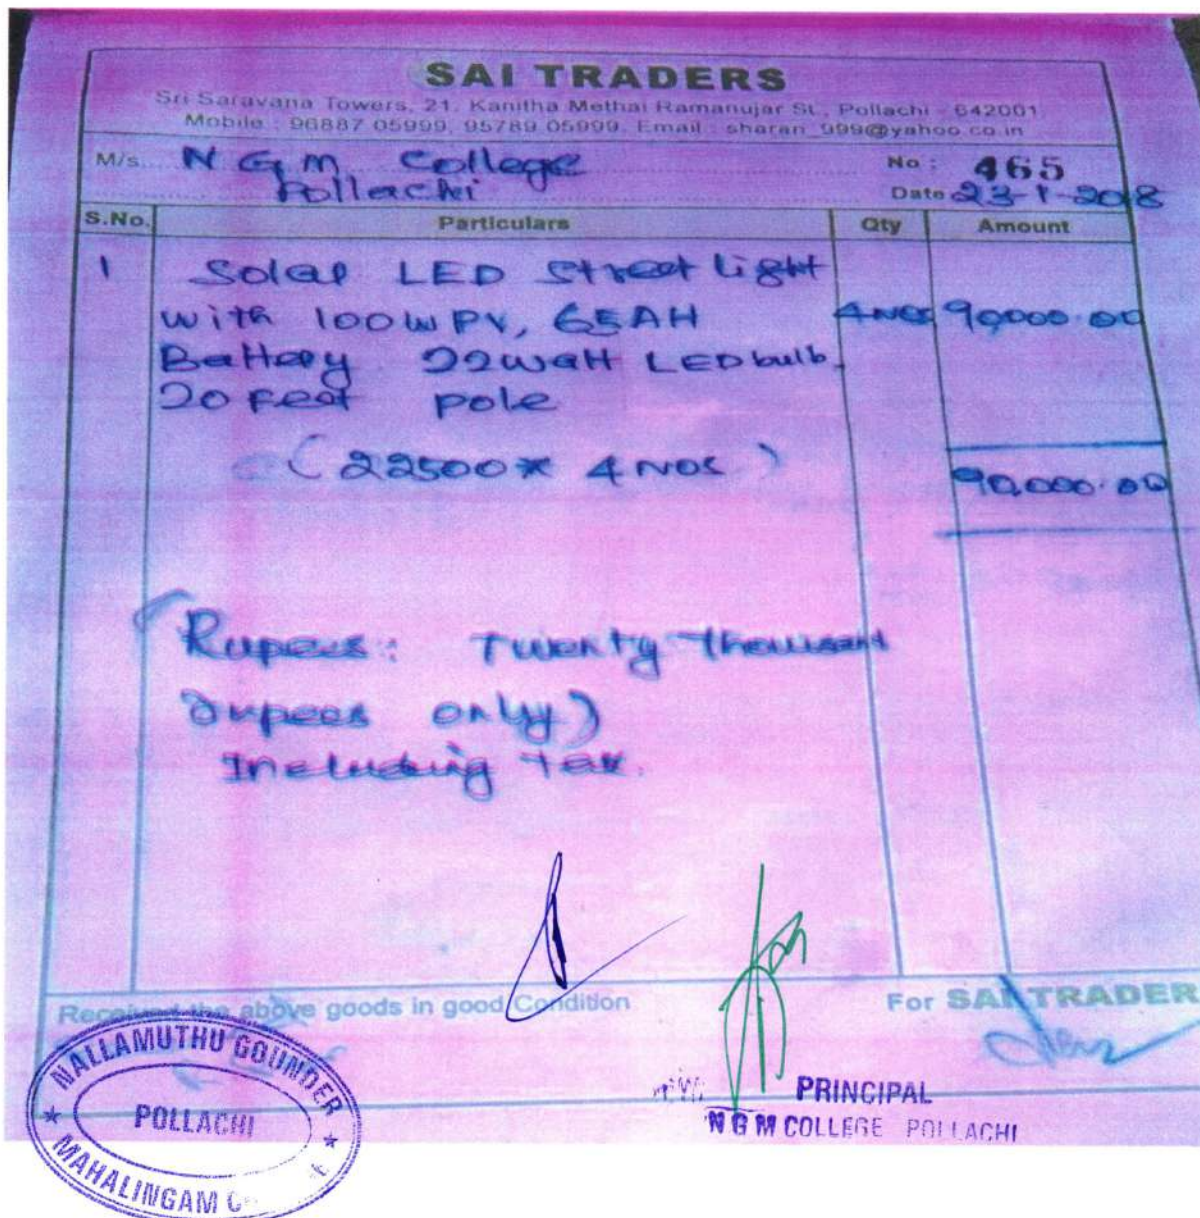 SAI TRADERS
Sri Saravana Towers, 21, Kanitha Methai Ramanujar St., Pollachi - 642001
Mobile : 96887 05999, 95789 05999. Email : sharan_999@yahoo.co.in
M/s. N G M College No : 465
Pollachi Date 23-1-2018
S.No. Particulars Qty Amount
1 Solar LED Street Light
with 100W PV, 65AH 4 Nos 90,000.00
Battery 22watt LED bulb.
20 Feet pole
(22500 * 4 NOS) 90,000.00
(Rupees: Twenty Thousand
rupees only)
Including tax.
Received the above goods in good Condition
For SAI TRADER
NALLAMUTHU GOUNDER
POLLACHI
MAHALINGAM
PRINCIPAL
N G M COLLEGE POLLACHI